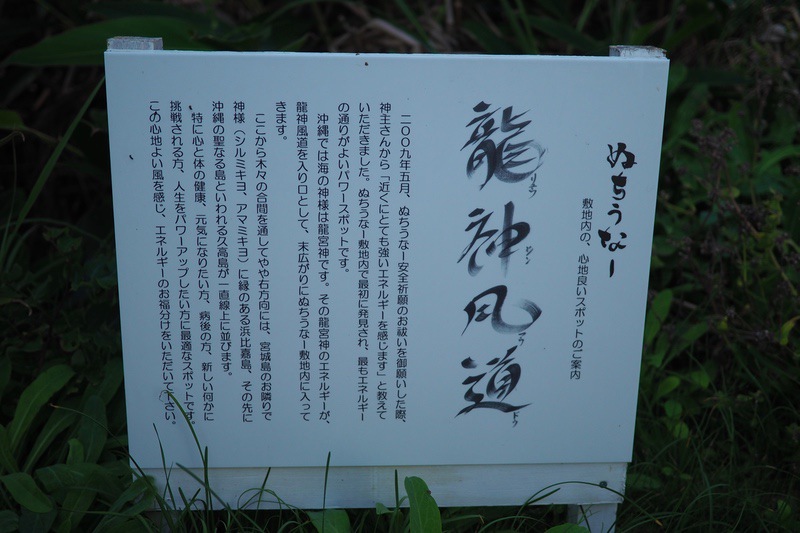 ぬちうなー
敷地内の、心地良いスポットのご案内
龍神風道
二〇〇九年五月、ぬちうなー安全祈願のお祓いを御願いした際、
神主さんから「近くにとても強いエネルギーを感じます」と教えて
いただきました。ぬちうなー敷地内で最初に発見され、最もエネルギー
の通りがよいパワースポットです。
沖縄では海の神様は龍宮神です。その龍宮神のエネルギーが、
龍神風道を入り口として、末広がりにぬちうなー敷地内に入って
きます。
ここから木々の合間を通してやや右方向には、宮城島のお隣りで
神様（シルミキヨ、アマミキヨ）に縁のある浜比嘉島、その先に
沖縄の聖なる島といわれる久高島が一直線上に並びます。
特に心と体の健康、元気になりたい方、病後の方、新しい何かに
挑戦される方、人生をパワーアップしたい方に最適なスポットです。
この心地よい風を感じ、エネルギーのお福分けをいただいて下さい。